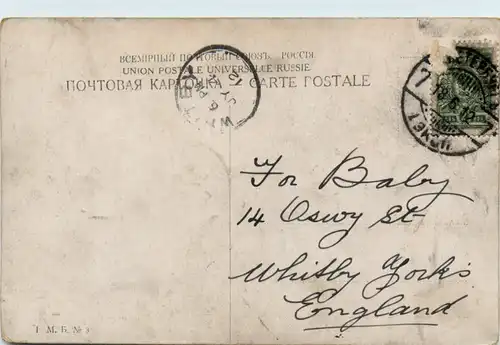 ВСЕМІРНЫЙ ПОЧТОВЫЙ СОЮЗЪ. РОССІЯ
UNION POSTALE UNIVERSELLE RUSSIE
ПОЧТОВАЯ КАРТОЧКА CARTE POSTALE
For Baby
14 Oswy St
Whitby Yorks
England